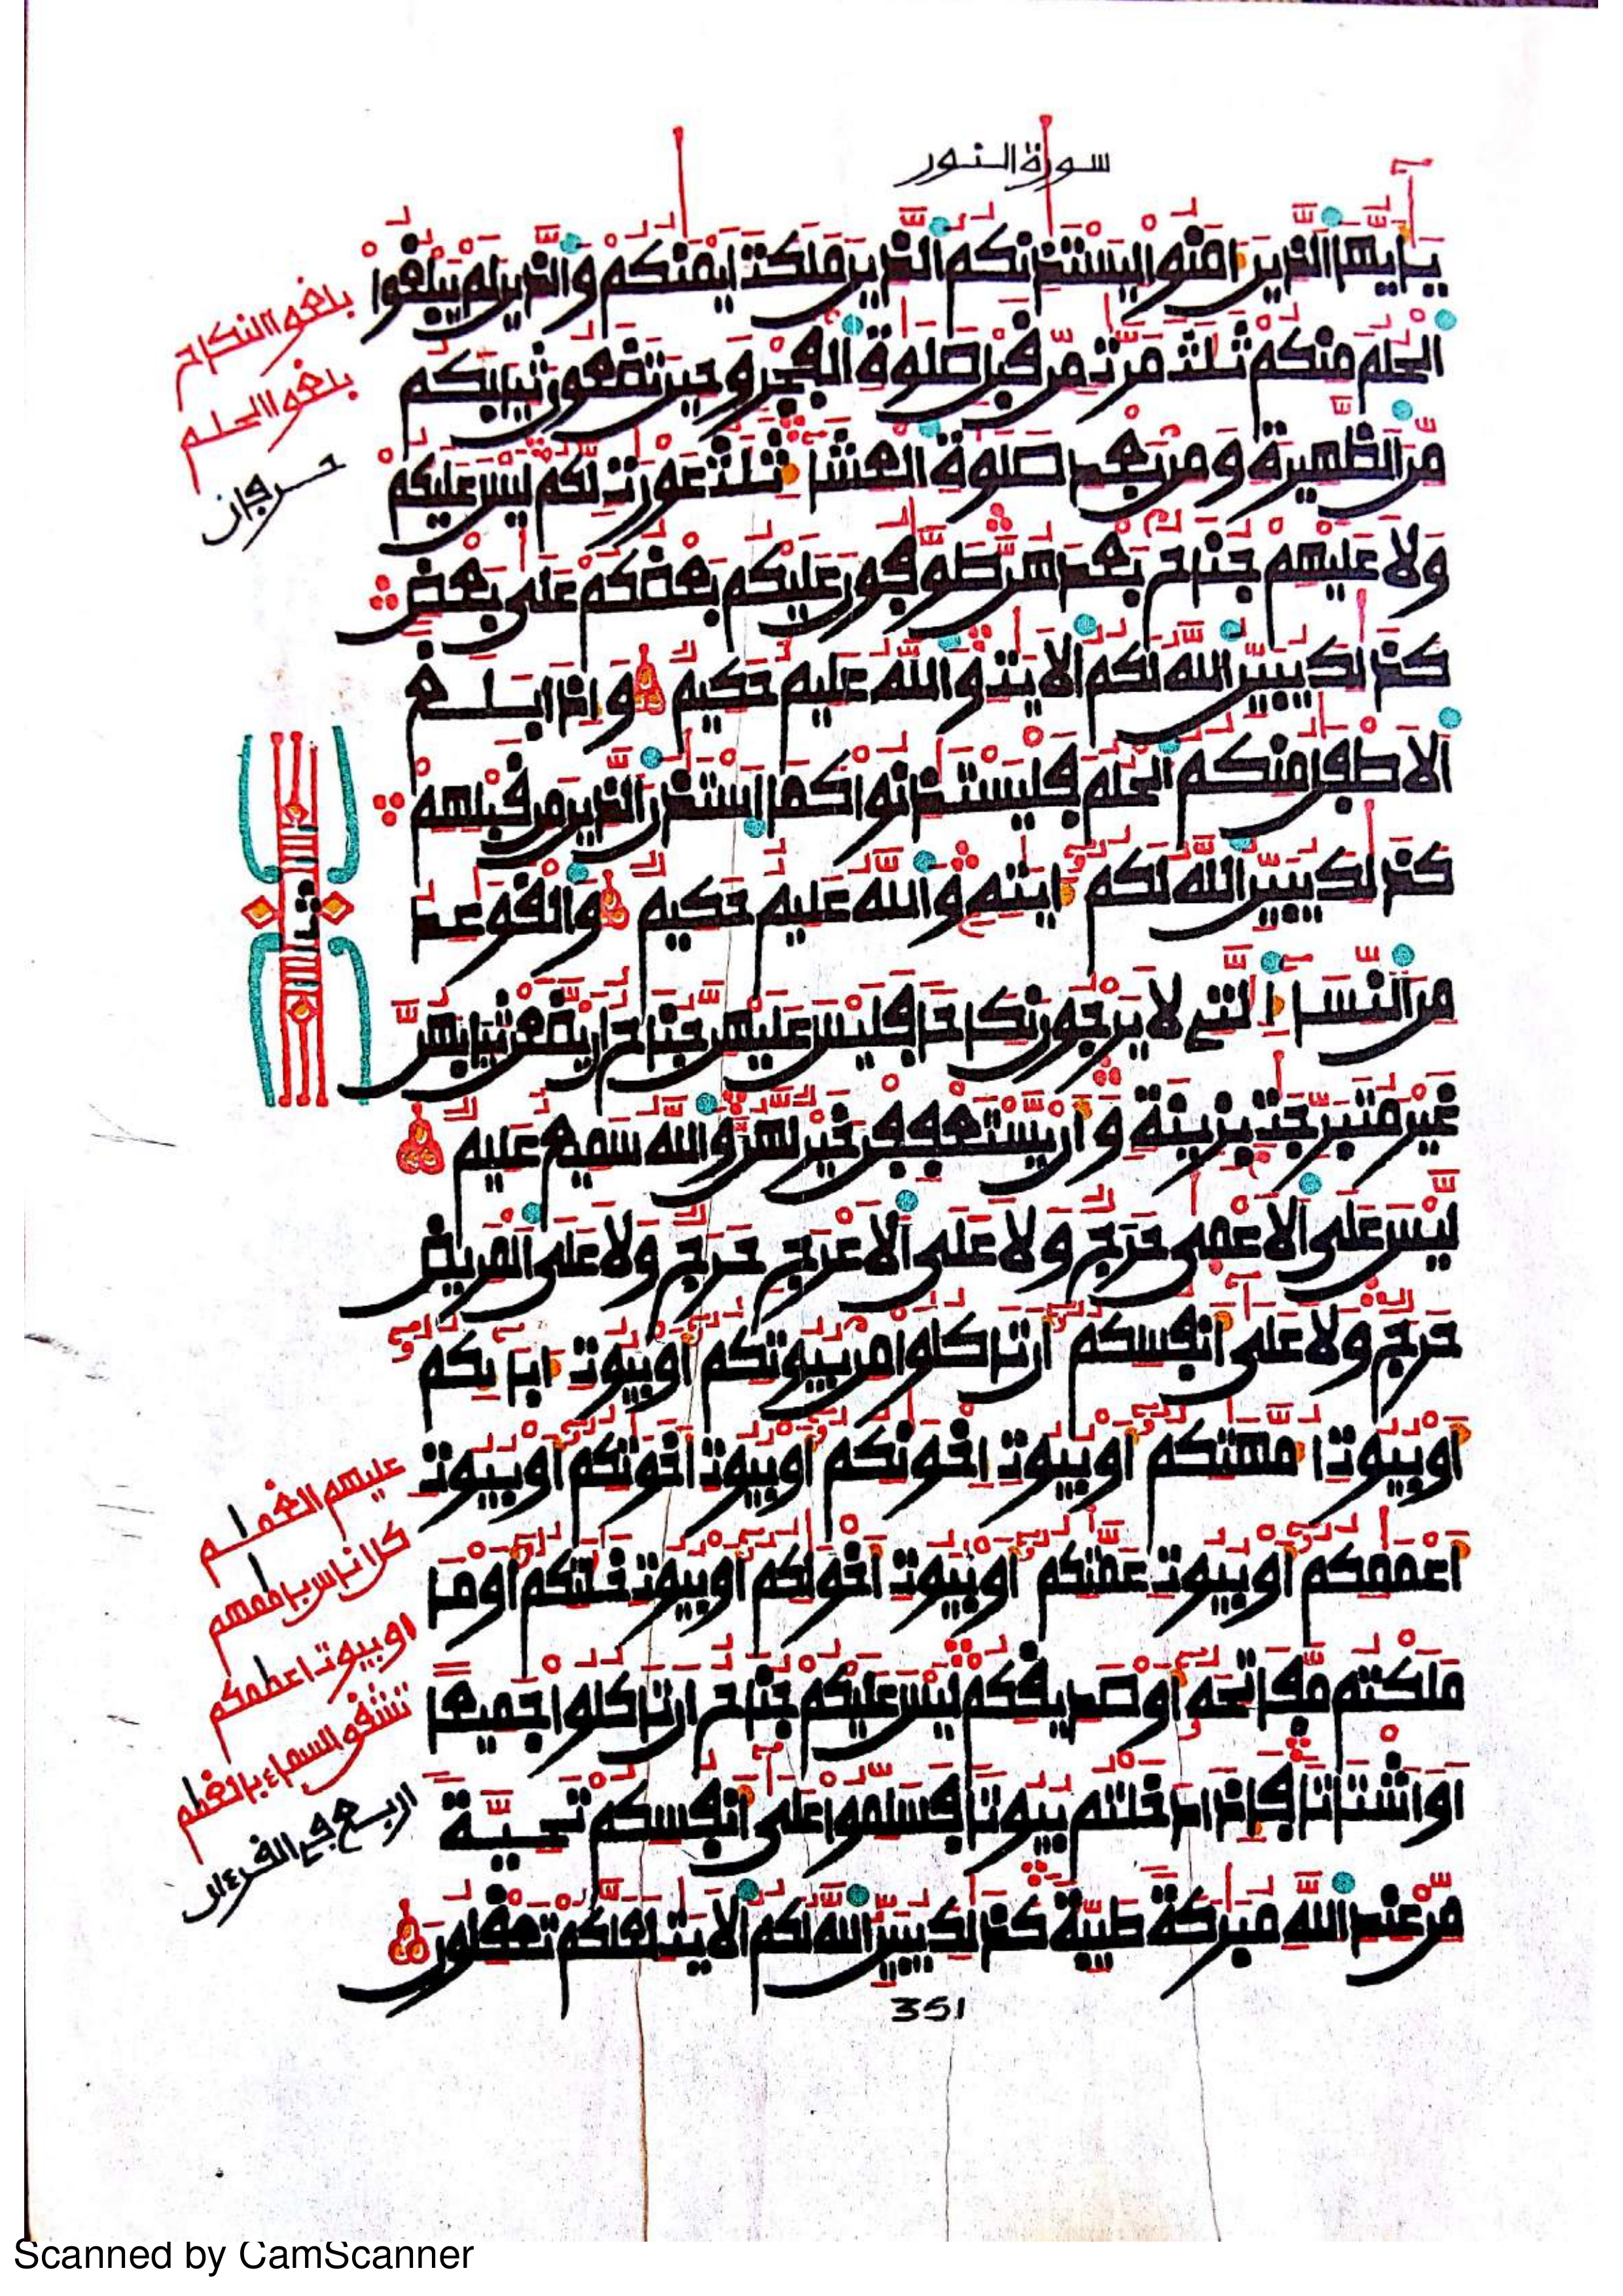 سورة النور
يٰأيها الذين امنوا ليستـٔذنكم الذين ملكت ايمنكم والذين لم يبلغوا
الحلم منكم ثلث مرت من قبل صلوة الفجر وحين تضعون ثيابكم
من الظهيرة ومن بعد صلوة العشا ثلث عورت لكم ليس عليكم
ولا عليهم جناح بعدهن طوفون عليكم بعضكم على بعض
كذلك يبين الله لكم الايت والله عليم حكيم واذا بلغ
الاطفل منكم الحلم فليستـٔذنوا كما استـٔذن الذين من قبلهم
كذلك يبين الله لكم ايته والله عليم حكيم والقوعد
من النسا التي لا يرجون نكاحا فليس عليهن جناح ان يضعن ثيابهن
غير متبرجت بزينة وان يستعففن خير لهن والله سميع عليم
ليس على الاعمى حرج ولا على الاعرج حرج ولا على المريض
حرج ولا على انفسكم ان تاكلوا من بيوتكم او بيوت ابايكم
او بيوت امهتكم او بيوت اخونكم او بيوت اخوتكم او بيوت
اعممكم او بيوت عمتكم او بيوت اخولكم او بيوت خلتكم او ما
ملكتم مفاتحه او صديقكم ليس عليكم جناح ان تاكلوا جميعا
او اشتاتا فاذا دخلتم بيوتا فسلموا على انفسكم تحية
من عند الله مبركة طيبة كذلك يبين الله لكم الايت لعلكم تعقلون
351
بلغوا النكاح
بلغوا الحلم
حرفان
ثمن
عليهم الغمام
كل اناس بامامهم
او بيوت اعمامكم
تشقق السماء بالغمام
اربع في القرءان
Scanned by CamScanner